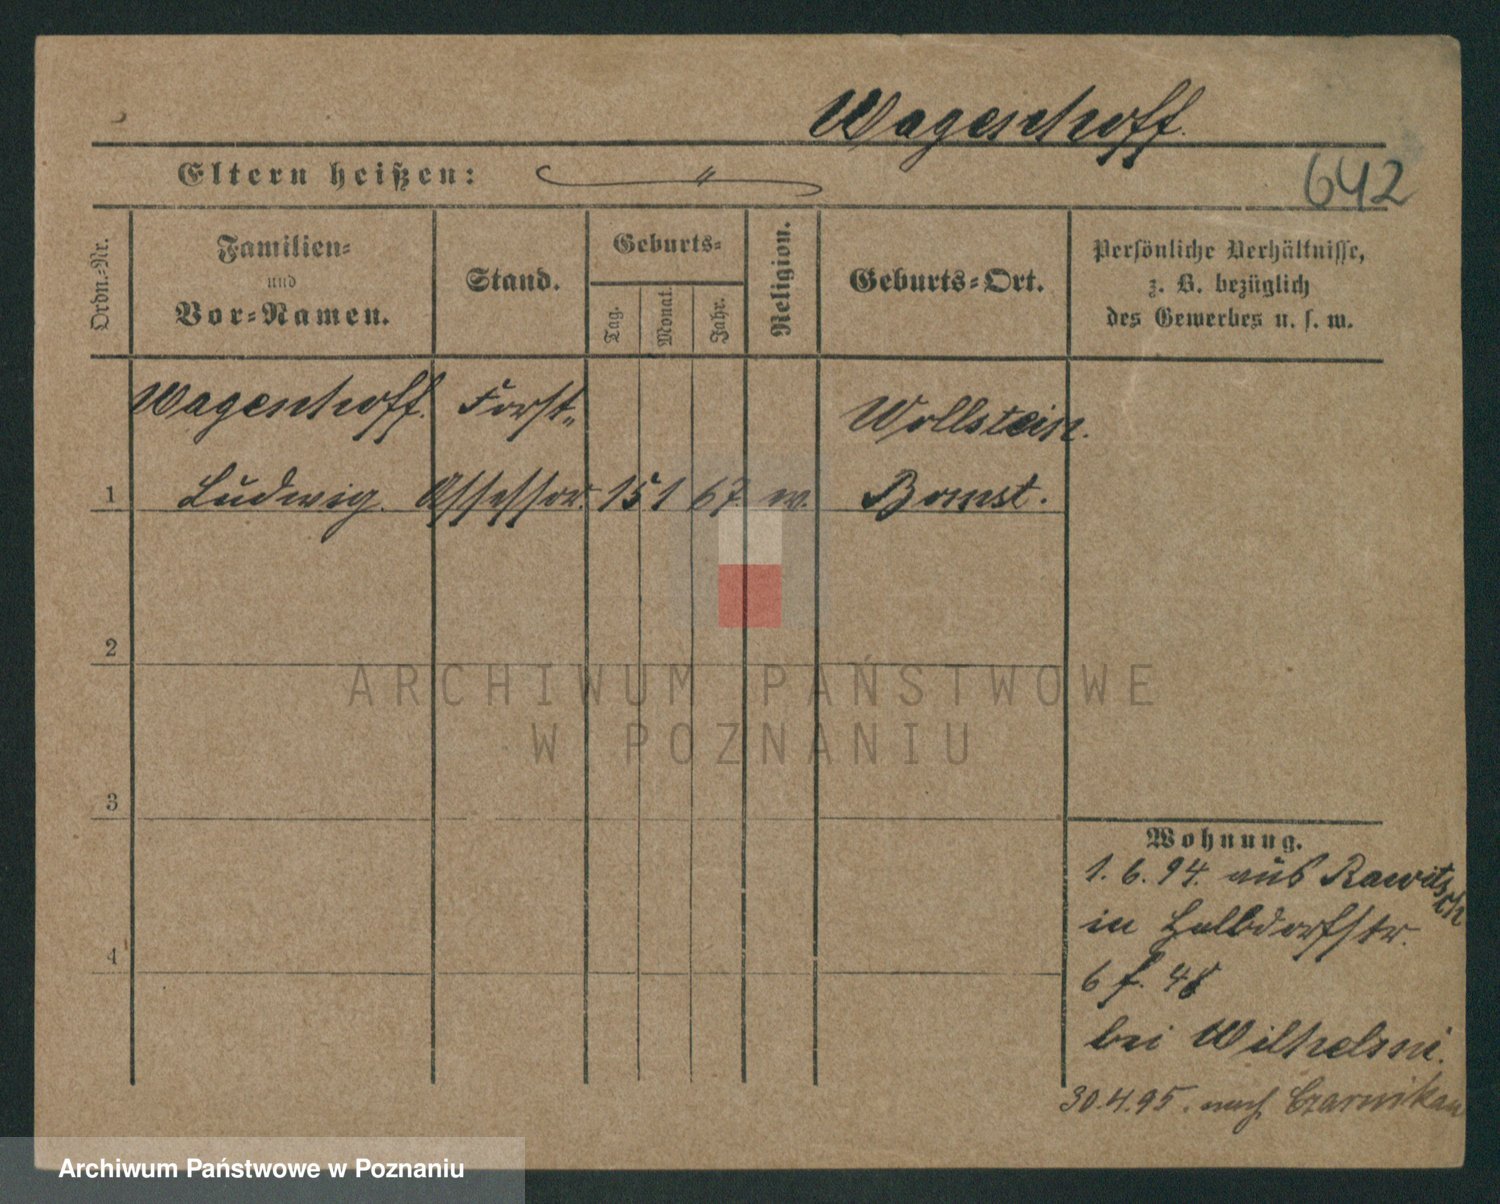 Wagenhoff.
Eltern heißen: "
642
Ordn.-Nr.
Familien-
und
Vor-Namen.
Stand.
Geburts-
Tag.
Monat.
Jahr.
Religion.
Geburts-Ort.
Persönliche Verhältnisse,
z. B. bezüglich
des Gewerbes u. s. w.
Wagenhoff. Forst- Wollstein.
1 Ludwig. Assessor. 15 1 67. Bomst.
2
ARCHIWUM PAŃSTWOWE
W POZNANIU
3
Wohnung.
1. 6. 94. aus Rawitsch
in Halbdorfstr.
6 f. 48
bei Wilhelmi.
4
30.4.95. nach Czarnikau
Archiwum Państwowe w Poznaniu